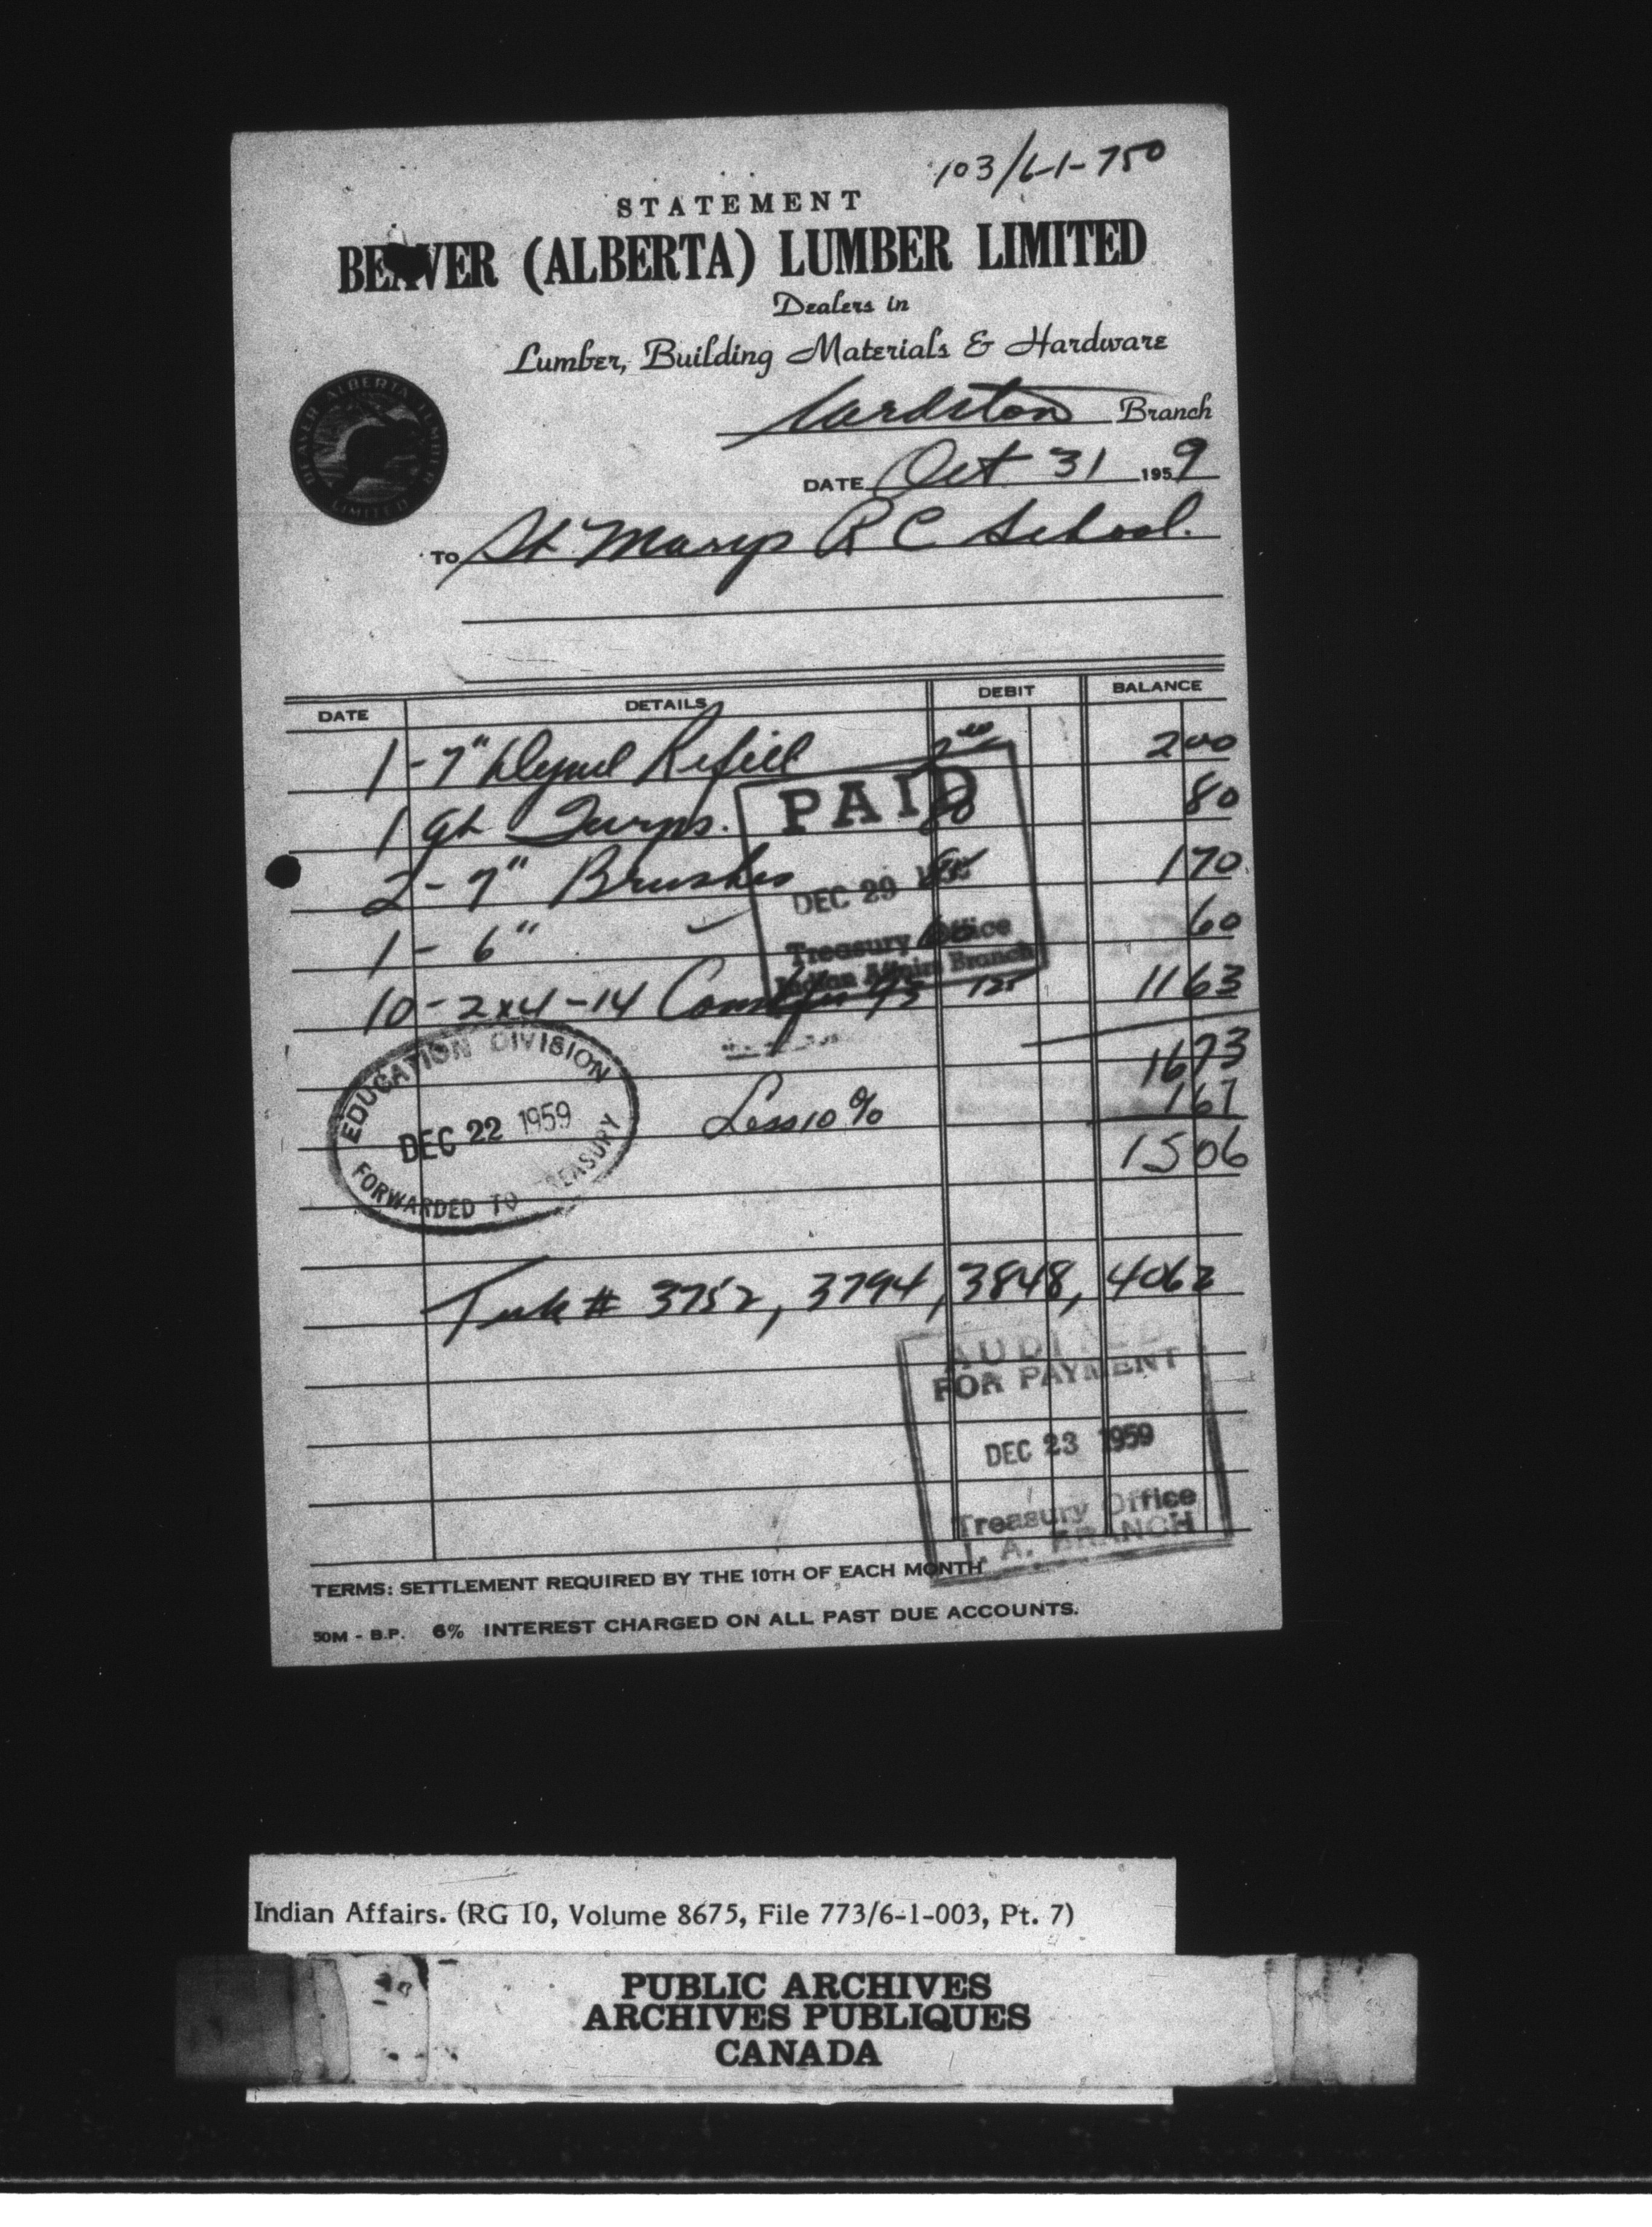 103/6-1-750
STATEMENT
BEAVER (ALBERTA) LUMBER LIMITED
Dealers in
Lumber, Building Materials & Hardware
BEAVER ALBERTA LUMBER LIMITED
Cardston Branch
DATE Oct 31 1959
TO St Marys R C School.
DATE DETAILS DEBIT BALANCE
1 - 7" Dynel Refill 2 00 2 00
1 qt Turps. 80 80
2 - 7" Brushes 85 1 70
1 - 6" 60 60
10 - 2x4-14 125 11 63
16 73
Less 10% 1 67
15 06
PAID
DEC 29
Treasury Office
Indian Affairs Branch
EDUCATION DIVISION
DEC 22 1959
FORWARDED TO TREASURY
# 3752, 3794, 3848, 4062
AUDITED
FOR PAYMENT
DEC 23 1959
Treasury Office
I. A. BRANCH
TERMS: SETTLEMENT REQUIRED BY THE 10TH OF EACH MONTH
50M - B.P. 6% INTEREST CHARGED ON ALL PAST DUE ACCOUNTS.
Indian Affairs. (RG 10, Volume 8675, File 773/6-1-003, Pt. 7)
PUBLIC ARCHIVES
ARCHIVES PUBLIQUES
CANADA